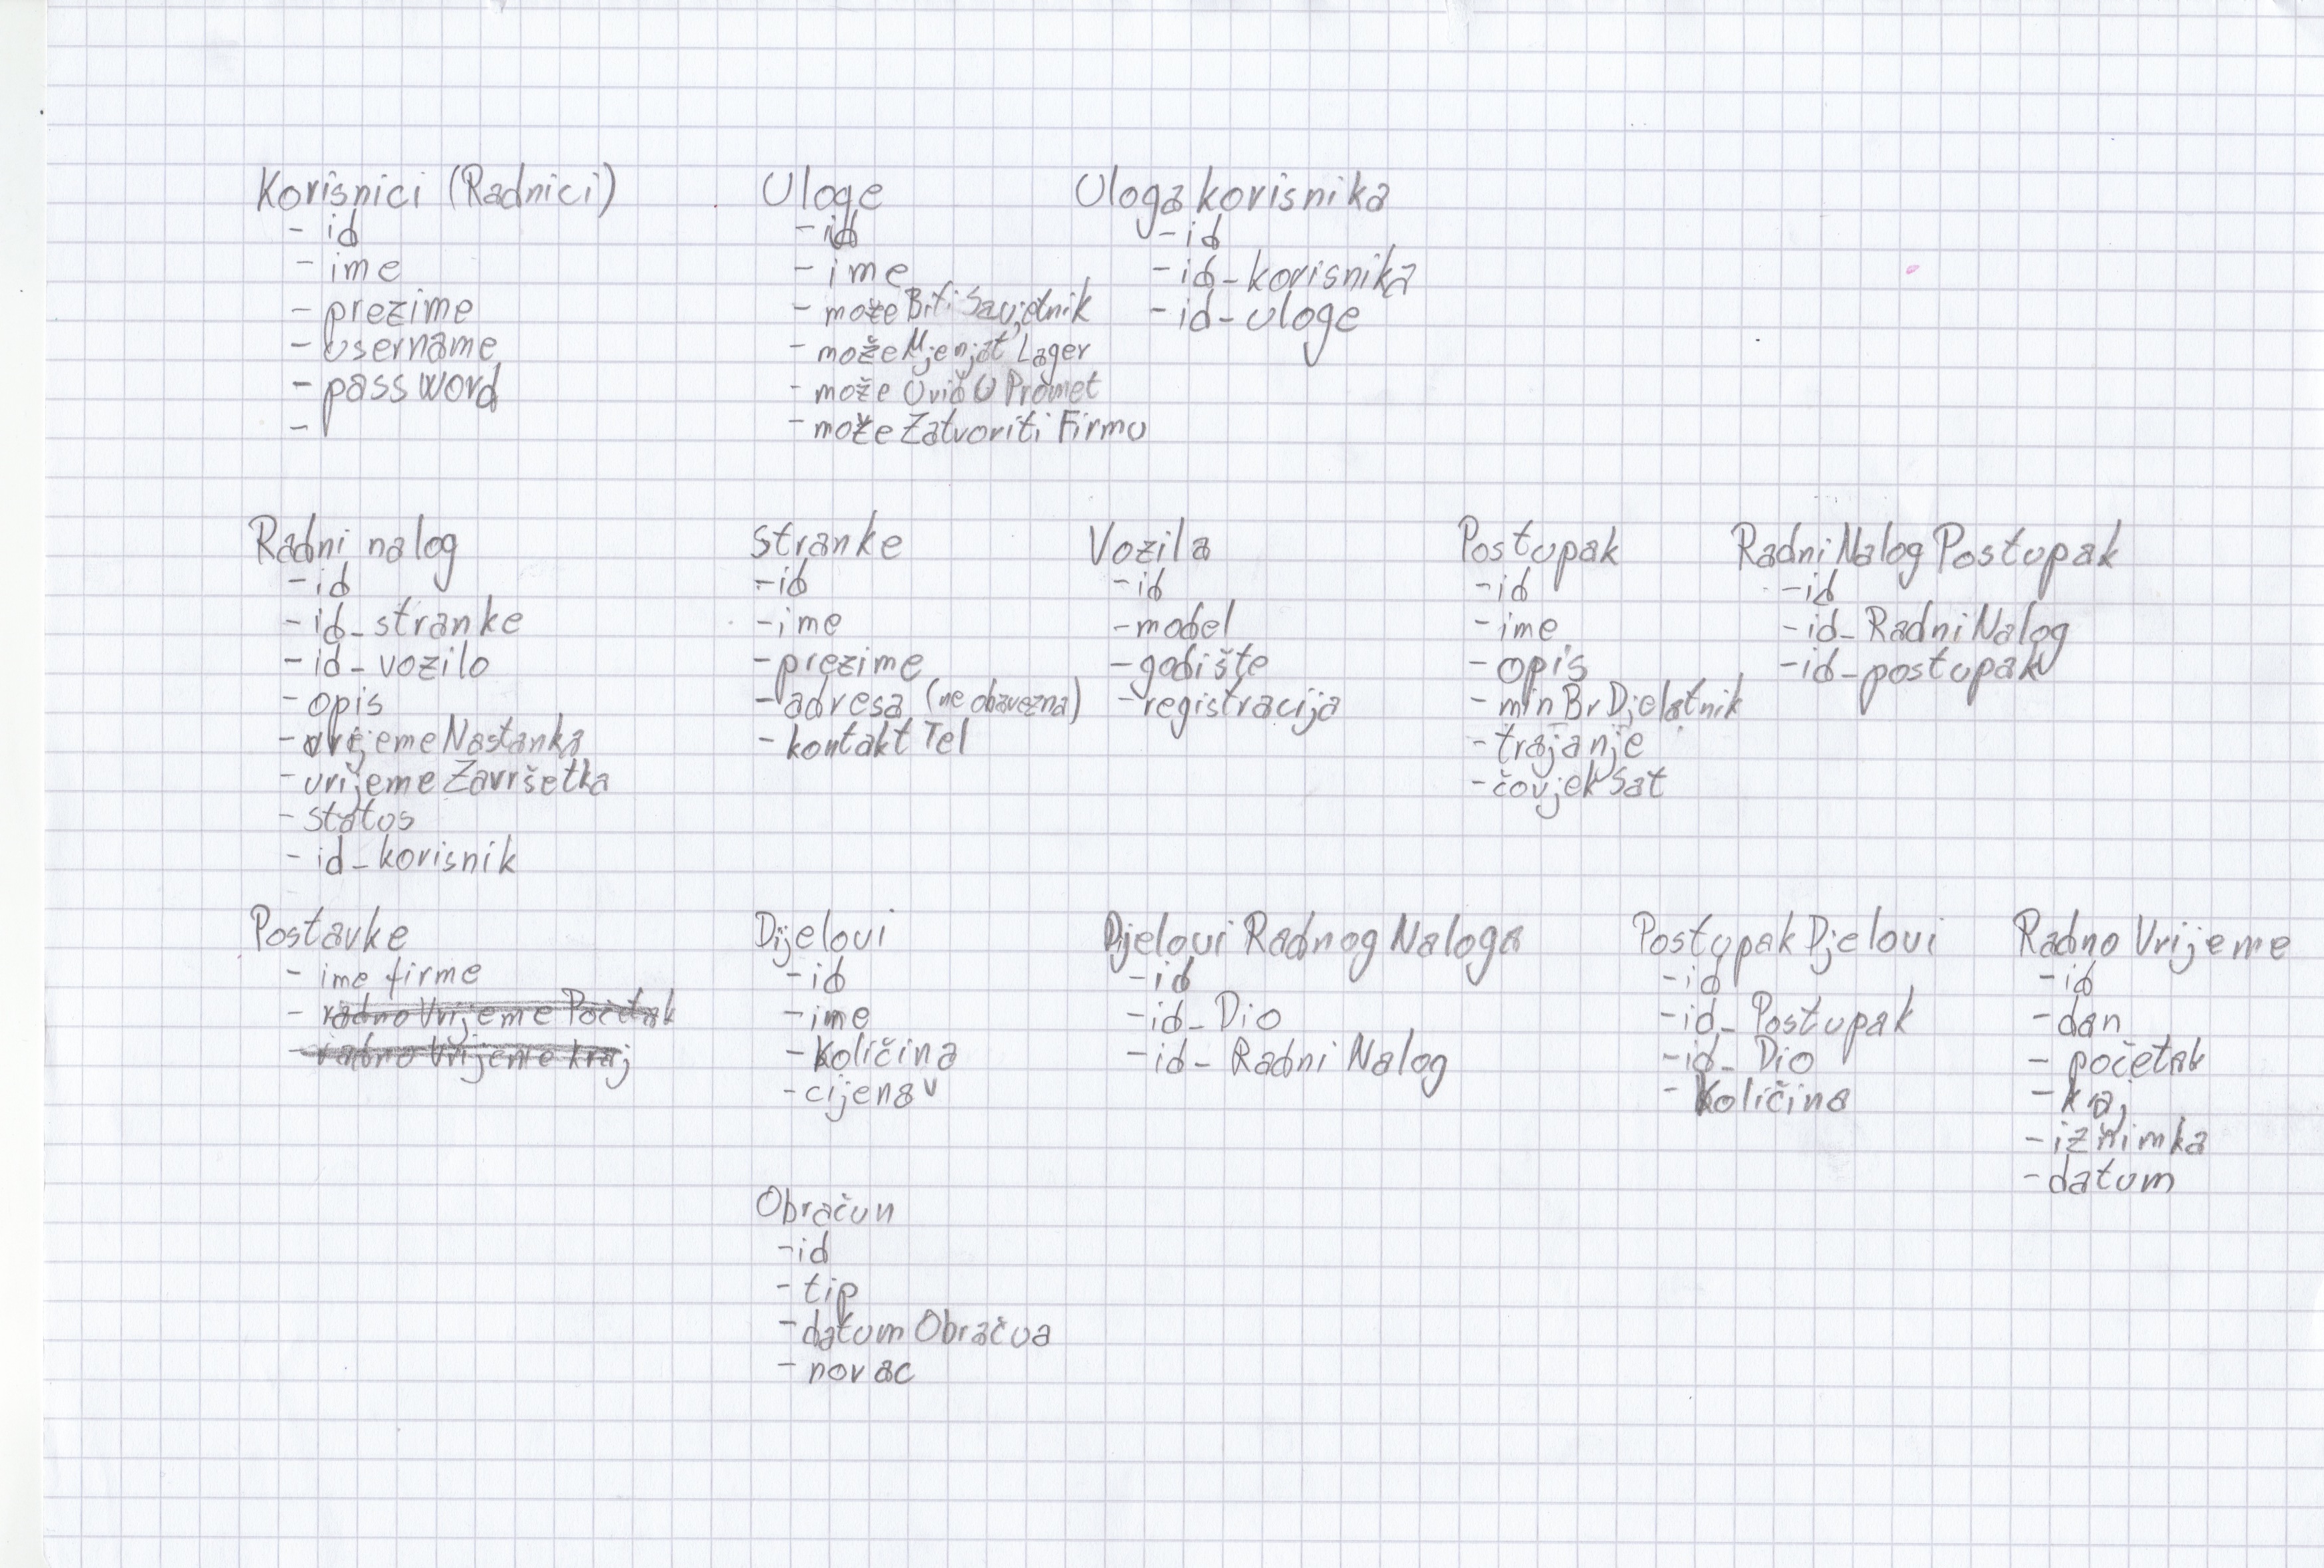 Korisnici (Radnici)
- id
- ime
- prezime
- username
- password
-
Uloge
- id
- ime
- može Biti Savjetnik
- može Mjenjat Lager
- može Uvid U Promet
- može Zatvoriti Firmu
Uloga korisnika
- id
- id_korisnika
- id_uloge
Radni nalog
- id
- id_stranke
- id_vozilo
- opis
- vrijeme Nastanka
- vrijeme Završetka
- status
- id_korisnik
stranke
- id
- ime
- prezime
- adresa (ne obavezna)
- kontakt Tel
Vozila
- id
- model
- godište
- registracija
Postupak
- id
- ime
- opis
- min Br Djelatnik
- trajanje
- čovjek Sat
Radni Nalog Postupak
- id
- id_Radni Nalog
- id_postupak
Postavke
- ime firme
- radno Vrijeme Početak
- radno Vrijeme kraj
Dijelovi
- id
- ime
- Količina
- cijena
Djelovi Radnog Naloga
- id
- id_Dio
- id_Radni Nalog
Postupak Djelovi
- id
- id_Postupak
- id_Dio
- Količina
Radno Vrijeme
- id
- dan
- početak
- kraj
- iznimka
- datum
Obračun
- id
- tip
- datum Obračua
- novac